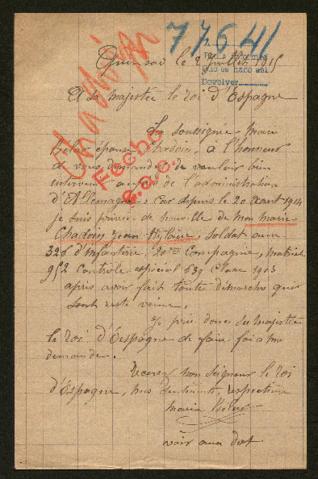 77641
le 2 Juillet 1915
A sa majestée le roi d'Espagne
La soussignée Marie
épouse Chadoin, à l'honneur
de vous demander de vouloir bien
intervenir auprès de l'administration
d'Allemagne, car depuis le 20 août 1914
je suis privée de nouvelle de mon marie
Chadoin Jean soldat aux
d'infanterie, 20eme Compagnie, matricule
952 Controle special 639 Classe 1903
après avoir fait toute démarche qui
sont resté vaine.
Je prie donc sa majestée
le roi d'espagne de faire foi a ma
demande.
Recevez mon seigneur le roi
d'Espagne, mes sentiments respectueux
Maria
voir au dos
Chadoin
Fecho
S.a.c.